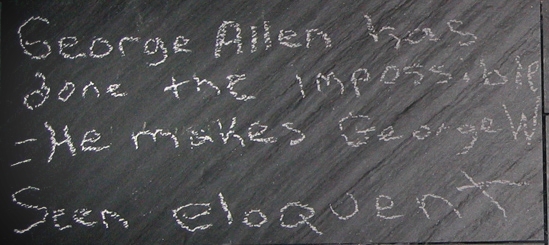 George Allen has
done the impossible
=He makes George W
Seem eloquent